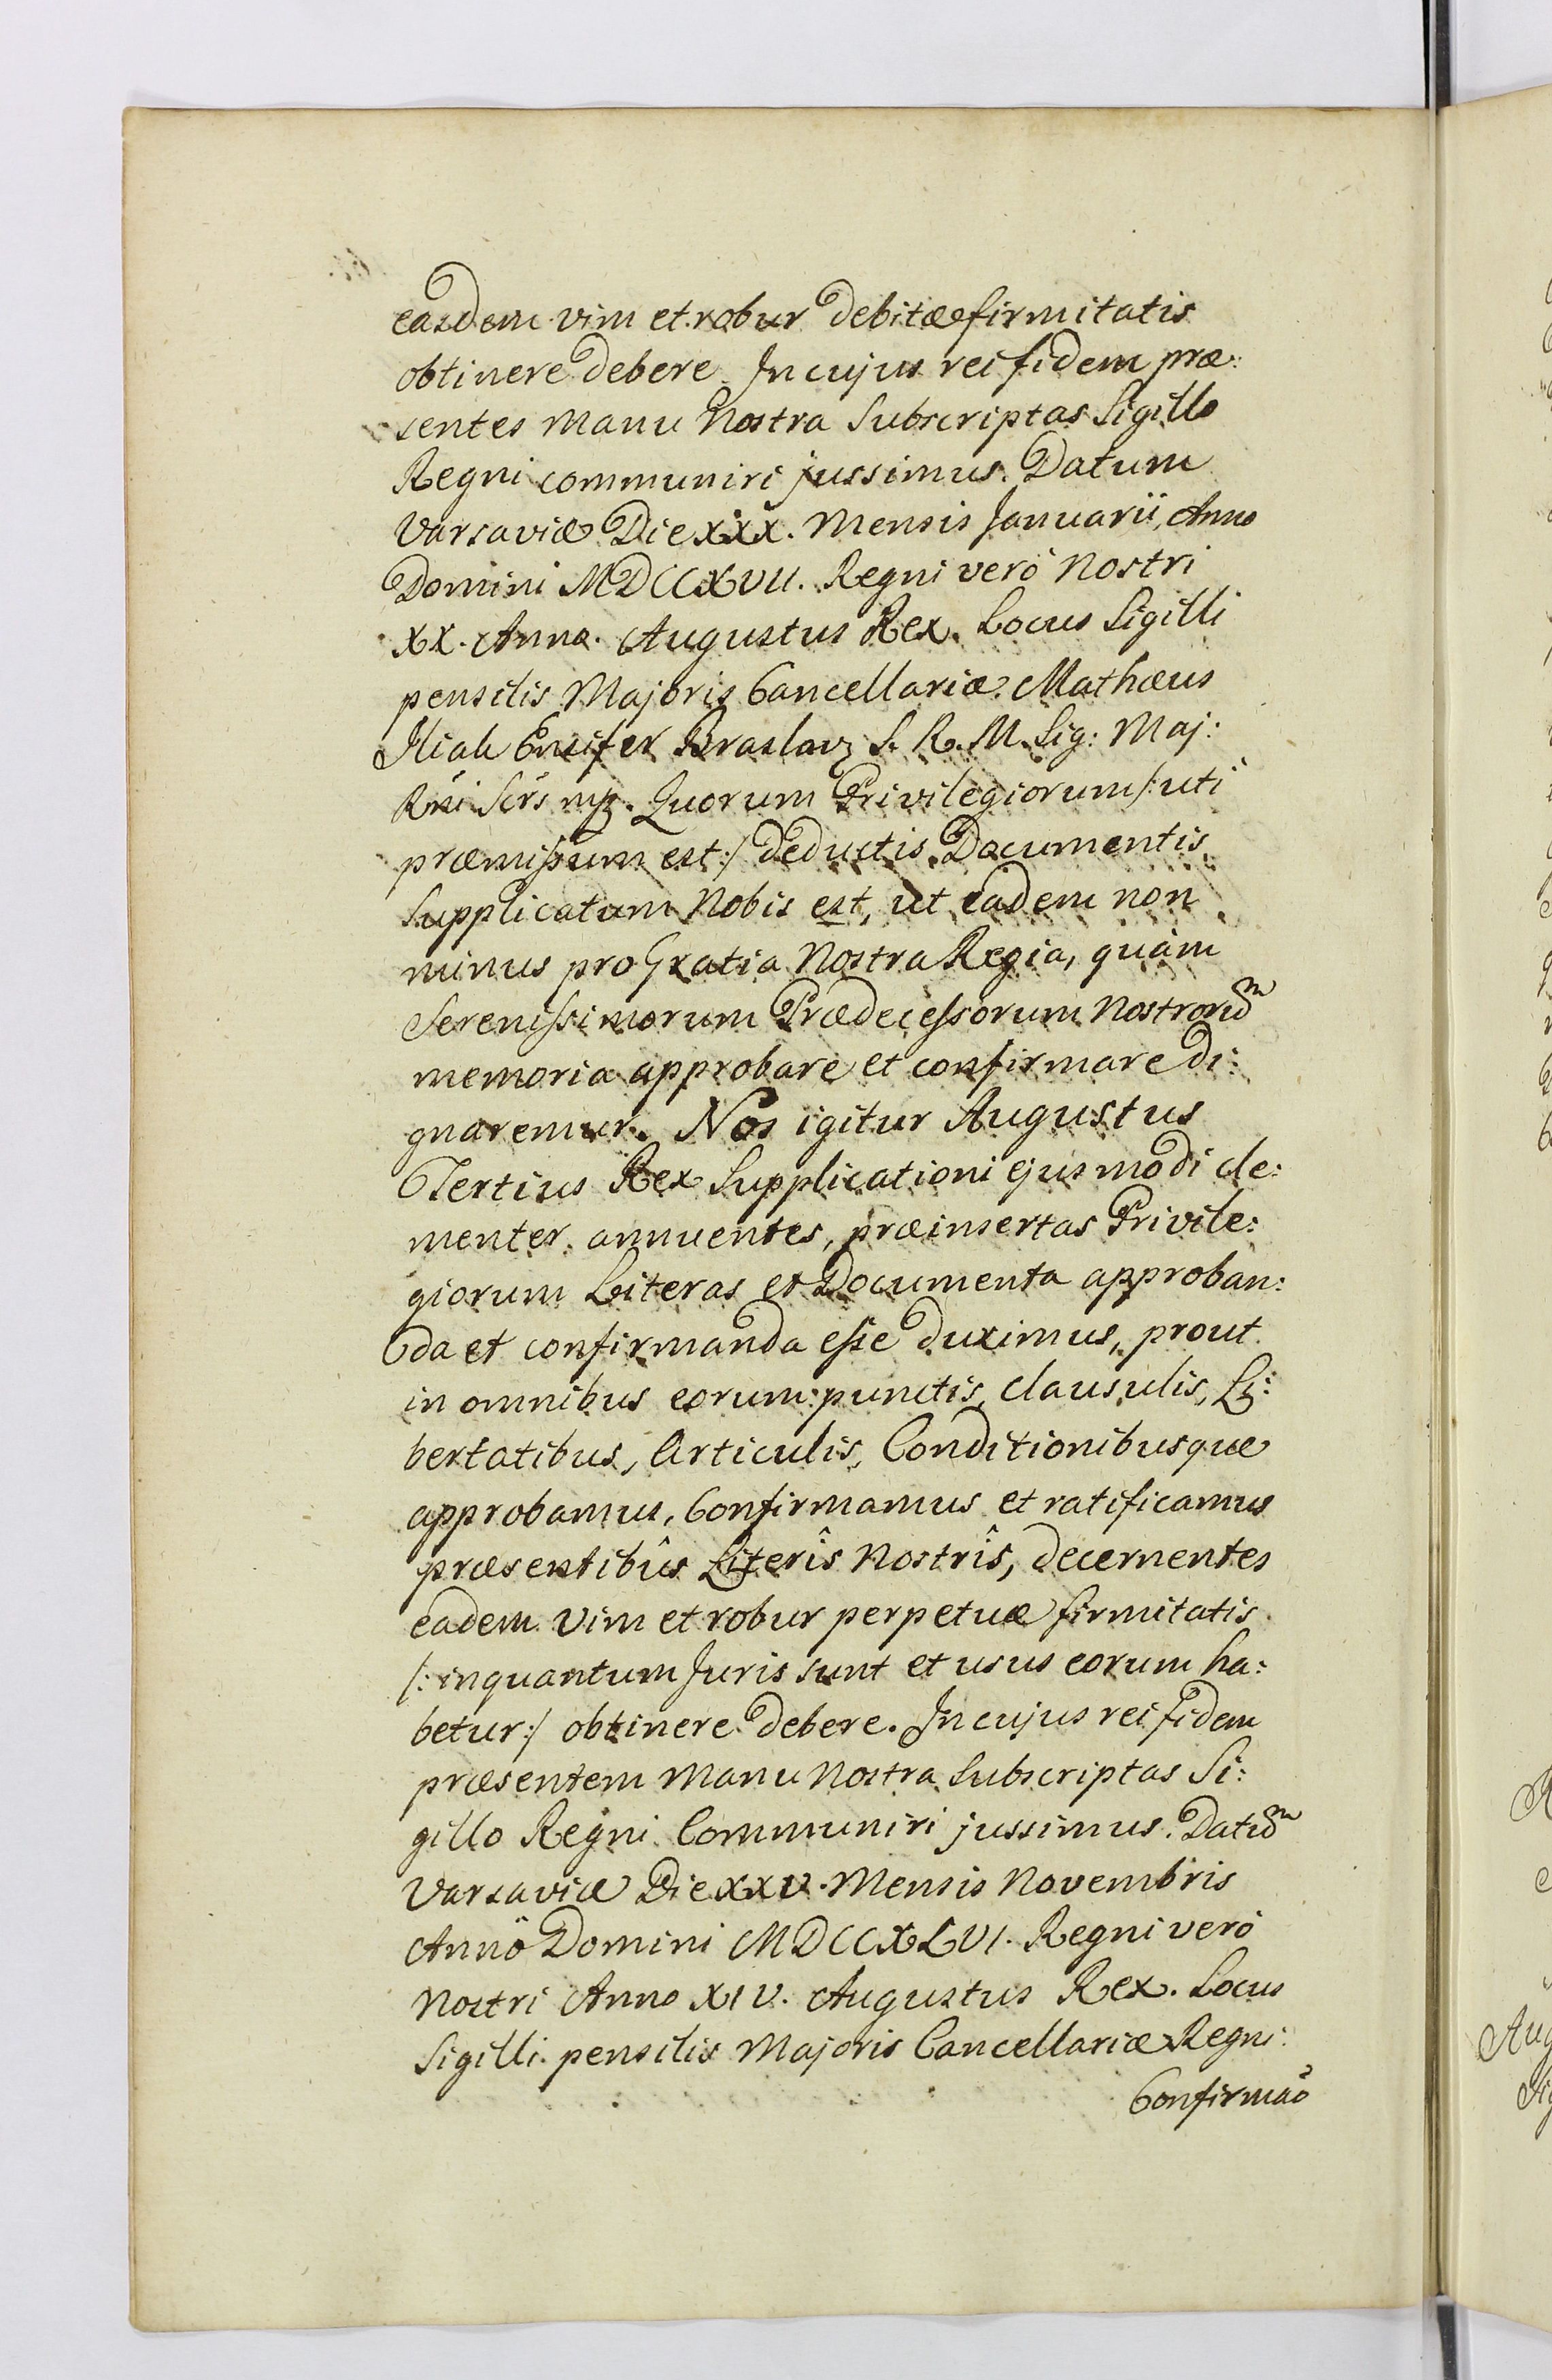 easdem vim et robur debitæ firmitatis
obtinere debere. In cujus rei fidem præ:
sentes manu Nostra Subscriptas Sigillo
Regni communiri jussimus. Datum
Varsaviæ Die XXX. Mensis Januarii, Anno
Domini MDCCXVII. Regni verò Nostri
XX. Anno. Augustus Rex. Locus Sigilli
pensilis Majoris Cancellariæ. Mathæus
Ensifer Braslav S. R. M. Sig: Maj:
Rni Srs mp. Quorum Privilegiorum /: uti
præmissum est :/ deductis Documentis
Supplicatum Nobis est, ut eadem non
minus pro Gratia Nostra Regia, quàm
Serenissimorum Prædecessorum Nostrorum
memoria approbare et confirmare di:
gnaremur. Nos igitur Augustus
Tertius Rex Supplicationi ejusmodi cle:
menter annuentes, præinsertas Privile:
giorum Literas et Documenta approban:
da et confirmanda esse duximus, prout
in omnibus eorum punctis, clausulis, Li:
bertatibus, Articulis, Conditionibusque
approbamus, Confirmamus et ratificamus
præsentibûs Literîs Nostrîs, decernentes
eadem vim et robur perpetuæ firmitatis
/: inquantum Juris sunt et usus eorum ha:
betur :/ obtinere debere. In cujus rei fidem
præsentem Manu Nostra Subscriptas Si:
gillo Regni Communiri jussimus. Datum
Varsaviæ Die XXV. Mensis Novembris
Annô Domini MDCCXLVI. Regni verò
Nostri Anno XIV. Augustus Rex. Locus
Sigilli pensilis Majoris Cancellariæ Regni.
Confirmão